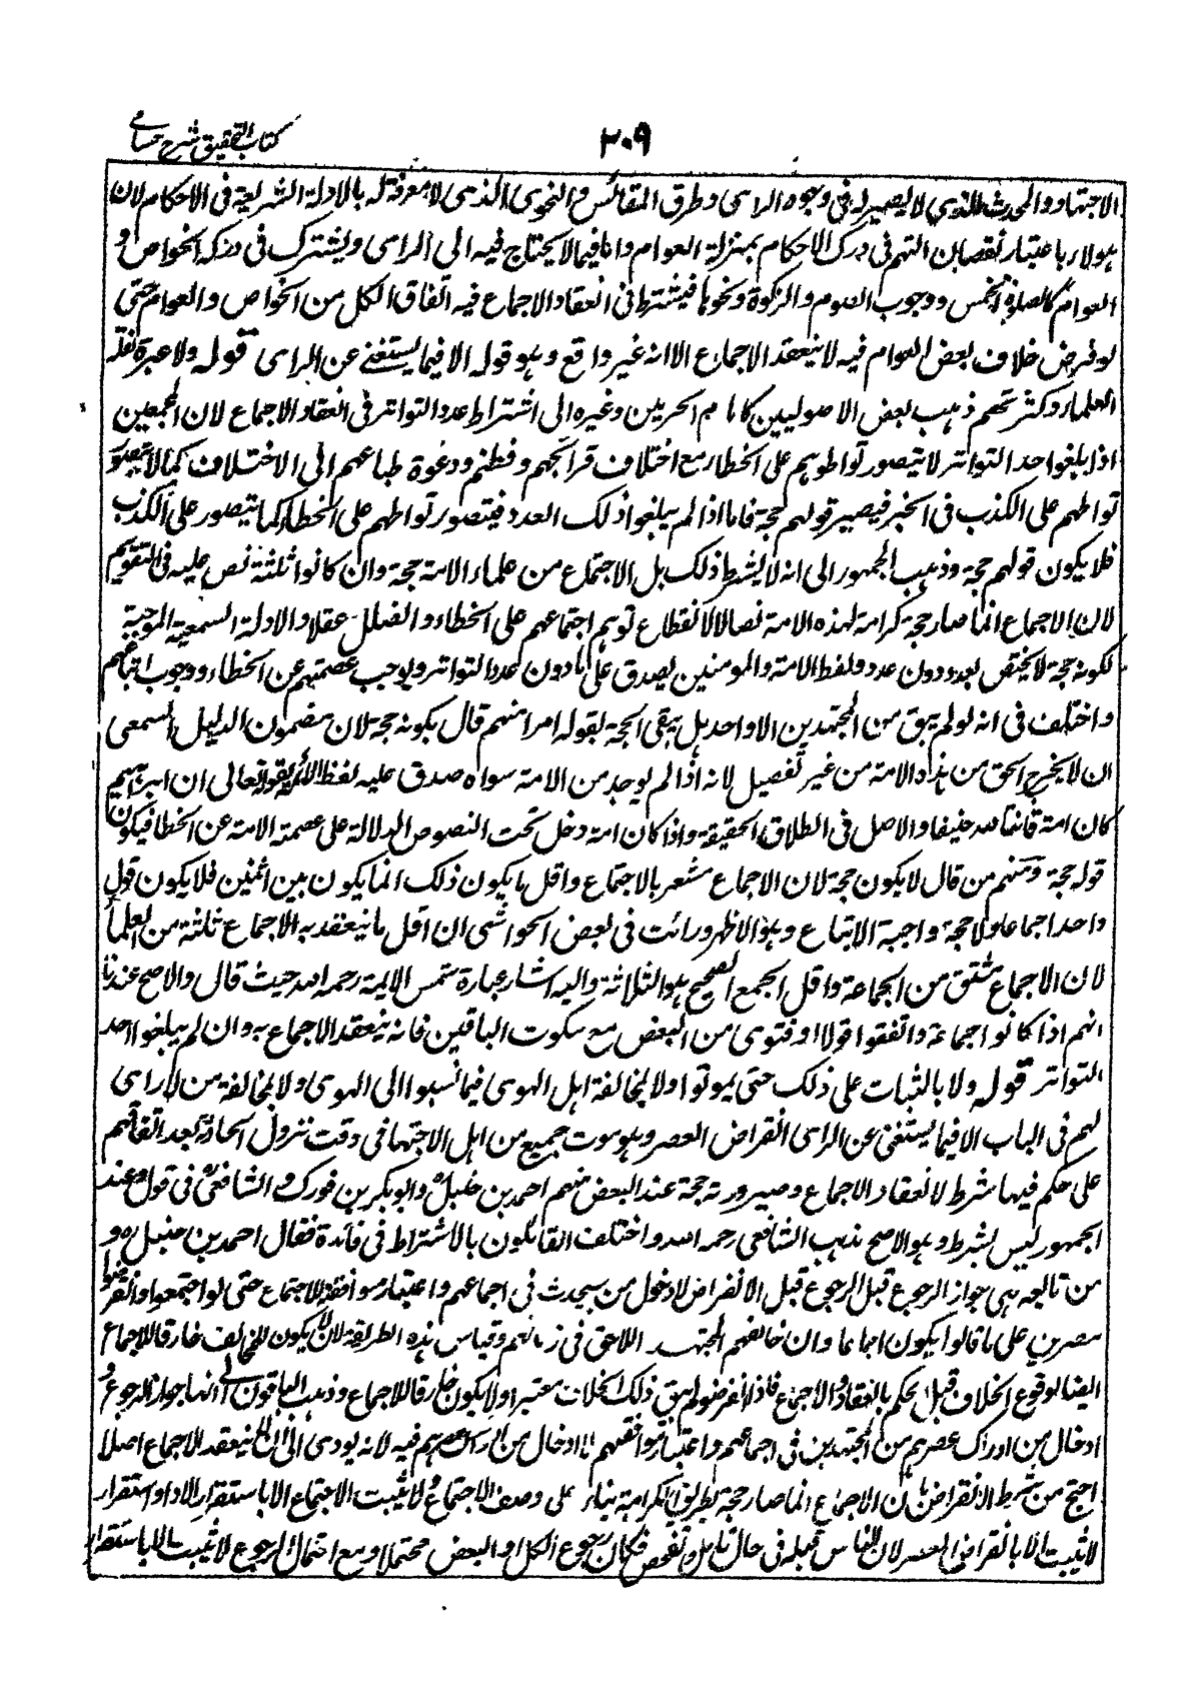 كتاب التحقيق شرح حسامى
٢٠٩
الاجتهاد والمحدث الذى لا بصيرله فى وجوه الراى وطرق المقائس والنحوى الذى لا معرفة له بالادلة الشرعية فى الاحكام لان
هولاء باعتبار نقصان التهم فى درك الاحكام بمنزلة العوام واما فيما لا يحتاج فيه الى الراى ويشترك فى دركه الخواص و
العوام كالصلوة الخمس ووجوب الصوم والزكوة ونحوها فيشترط فى انعقاد الاجماع فيه اتفاق الكل من الخواص والعوام حتى
لو فرض خلاف بعض العوام فيه لا ينعقد الاجماع الا انه غير واقع وهو قوله الا فيما يستغنى عن الراى قوله ولا عبرة لقلة
العلماء وكثرتهم ذهب بعض الاصوليين كامام الحرمين وغيره الى اشتراط عدد التواتر فى انعقاد الاجماع لان المجمعين
اذا بلغوا حد التواتر لا يتصور تواطوهم على الخطاء مع اختلاف قرائحهم وفطنهم ودعوة طباعهم الى الاختلاف كما لا يتصور
تواطهم على الكذب فى الخبر فيصير قولهم حجة فاما اذا لم يبلغوا ذلك العدد فيتصور تواطهم على الخطاء كما يتصور على الكذب
فلا يكون قولهم حجة وذهب الجمهور الى انه لا يشترط ذلك بل الاجتماع من علماء الامة حجة وان كانوا ثلثة نص عليه فى التقويم
لان الاجماع انما صار حجة كرامة لهذه الامة نصا لا لانقطاع توهم اجتماعهم على الخطاء والضلل عقلا والادلة السمعية الموجبة
لكونه حجة لا يختص بعدد دون عدد ولفظ الامة والمومنين يصدق على ما دون عدد التواتر ويوجب عصمتهم عن الخطاء ووجوب اتباعهم
واختلف فى انه لو لم يبق من المجتهدين الا واحد هل يبقى الحجة بقوله ام لا منهم قال بكونه حجة لان مضمون الدليل السمعى
ان لا يخرج الحق من هذه الامة من غير تفصيل لانه اذا لم يوجد من الامة سواه صدق عليه لفظ الامة لقوله تعالى ان ابرهيم
كان امة قانتا لله حنيفا والاصل فى الطلاق الحقيقة واذا كان امة دخل تحت النصوص الدلالة على عصمة الامة عن الخطا فيكون
قوله حجة ومنهم من قال لا يكون حجة لان الاجماع مشعر بالاجتماع واقل ما يكون ذلك انما يكون بين اثنين فلا يكون قول
واحد اجماعا ولا حجة واجبة الاتباع وهو الاظهر ورائت فى بعض الحواشى ان اقل ما ينعقد به الاجماع ثلثة من العلماء
لان الاجماع مشتق من الجماعة واقل الجمع الصحيح هو الثلاثة واليه اشار عبارة شمس الايمة رحمه الله حيث قال والاصح عندنا
انهم اذا كانوا جماعة واتفقوا قولا او فتوى من البعض مع سكوت الباقين فانه ينعقد الاجماع به وان لم يبلغوا حد
التواتر قوله ولا بالثبات على ذلك حتى يموتوا ولا لمخالفة اهل الهوى فيما نسبوا الى الهوى ولا لمخالفة من لا راى
لهم فى الباب الا فيما يستغنى عن الراى انقراض العصر وهو موت جميع من اهل الاجتهاد فى وقت نزول الحادثة بعد اتفاقهم
على حكم فيها شرط لانعقاد الاجماع وصيرورته حجة عند البعض منهم احمد بن حنبل وابو بكر بن فورك والشافعى فى قول وعند
الجمهور ليس بشرط وهو الاصح مذهب الشافعى رحمه الله واختلف القائلون بالاشتراط فى فائدة فقال احمد بن حنبل و
من تابعه هى جواز الرجوع قبل الرجوع قبل الانقراض لا دخول من سيحدث فى اجماعهم واعتبار موافقة للاجتماع حتى لو اجتمعوا وانقرضوا
مصرين على ما قالوا يكون اجماعا وان خالفهم المجتهد اللاحق فى زمانهم وقياس هذه الطريقة لان لا يكون للمخالف خارقا للاجماع
ايضا لوقوع الخلاف قبل الحكم بانعقاد الاجماع فاذا انقرضوا لم يبق ذلك الخلاف معتبرا ولا يكون خارقا للاجماع وذهب الباقون الى انها جواز الرجوع و
ادخال من ادراك عصرهم من المجتهدين فى اجماعهم واعتبار موافقتهم لا ادخال من ادرك عصرهم فيه لانه يودى الى ان لا ينعقد الاجماع اصلا
احتج من شرط الانقراض بان الاجماع انما صار حجة بطريق الكرامة بناء على وصف الاجتماع ولا يثبت الاجتماع الا باستقرار الاراء واستقرار
لا يثبت الا بانقراض العصر لان الناس قبله فى حال تامل وتفحص فكان رجوع الكل او البعض محتملا ومع احتمال الرجوع لا يثبت الا باستقرار